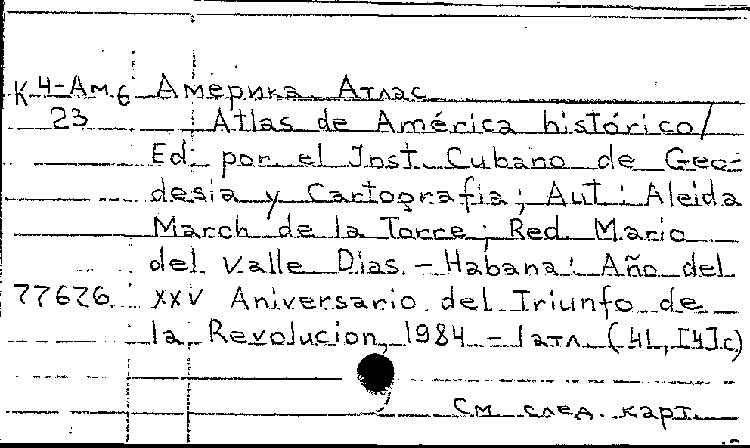 К 4-Ам.6 Америка. Атлас
23 Atlas de América histórico/
Ed. por el Inst. Cubano de Geo-
desia y Cartografia; Aut.: Aleida
March de la Torre; Red. Mario
del Valle Dias. – Habana: Año del
77626 XXV Aniversario del Triunfo de
la Revolucion, 1984 – 1 атл (41, [4]с)
См. след. карт.